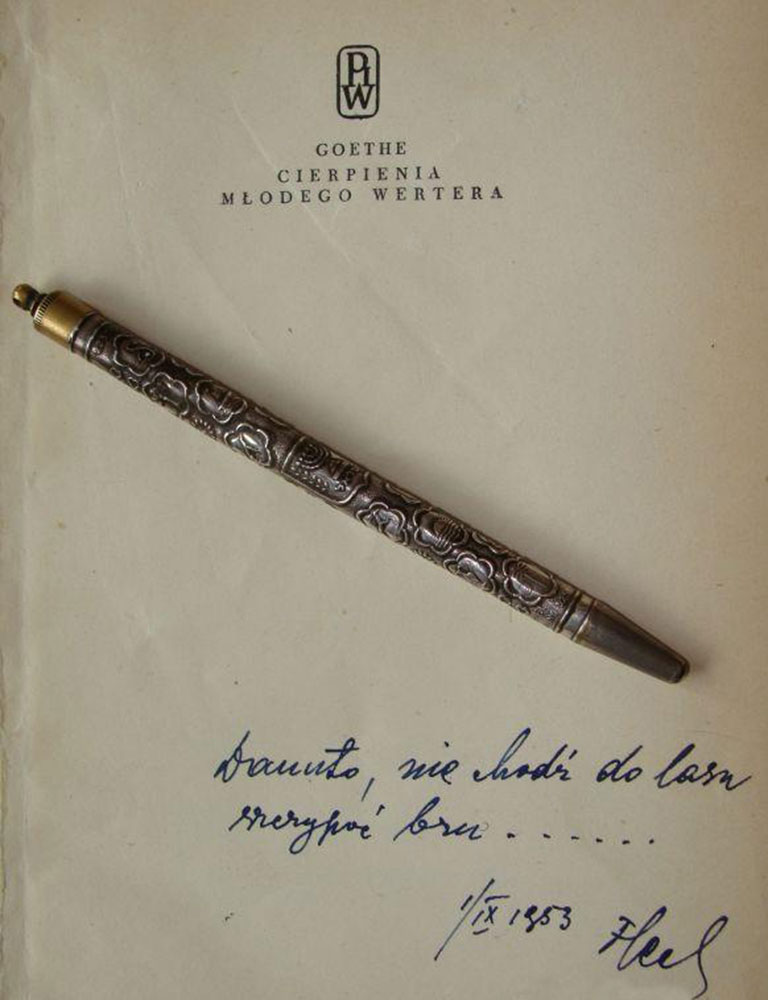 PIW
GOETHE
CIERPIENIA
MŁODEGO WERTERA
Danuto, nie chodź do lasu
bzu . . . . . .
1/IX 1953